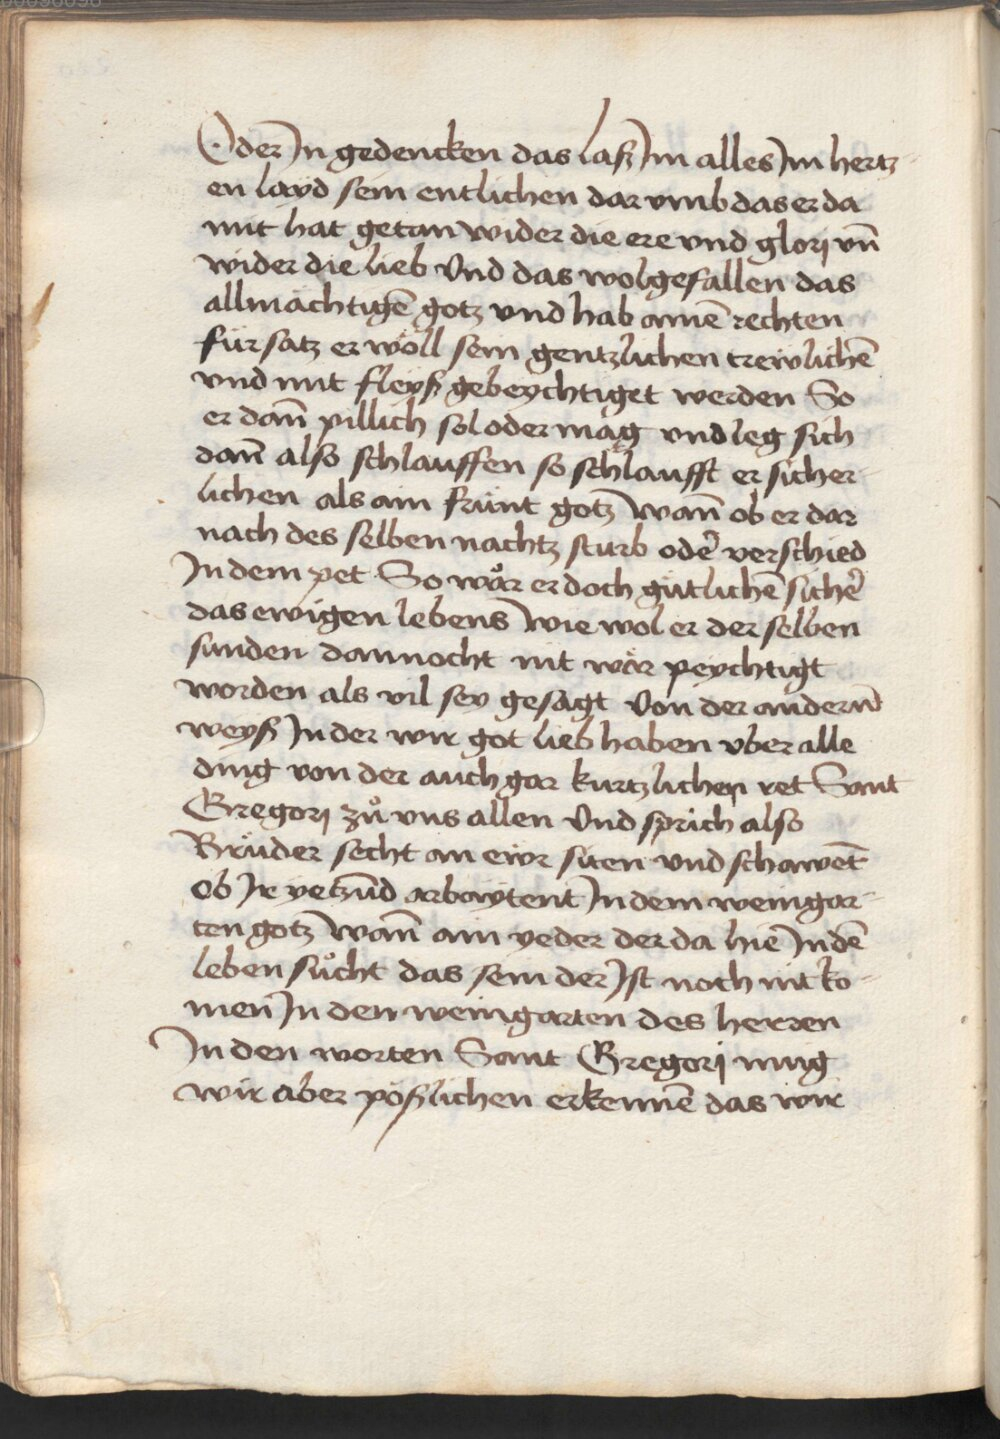 Oder In gedencken das laß Im alles Im hertz-
en layd sein entlichen dar vmb das er da
mit hat getan wider die ere vnd glorj vn̄
wider die lieb Vnd das wolgefallen das
allmächtigē gotz vnd hab ainē rechten
fürsatz er wöll sein gentzlichen trewlichē
vnd mit fleyß gebeychtiget werden So
er dan̄ pillich sol oder mag vnd leg sich
dan̄ also schlauffen so schlaufft er sicher-
lichen als ain fraint gotz Wan̄ ob er dar
nach des selben nachtz sturb odē verschied
In dem pet So wär er doch gütlichē sichē
das ewigen lebens Wie wol er der selben
sunden dannocht nit wär peychtigt
worden als vil sey gesagt Von der andern̄
weyß In der wir got lieb haben vber alle
ding von der auch gar kurtzlichen ret Sant
Gregorj zů vns allen Vnd sprich also
Brüder secht an ewr siten vnd schawēt
ob Ir yetzūd arbaytent In dem weingar-
ten gotz Wan̄ ain yeder der da hie In dē
leben sůcht das sein der Ist noch nit ko-
men In den weingarten des herren
In den worten Sant Gregorj mūg
wir aber pößlichen erkennē das wir